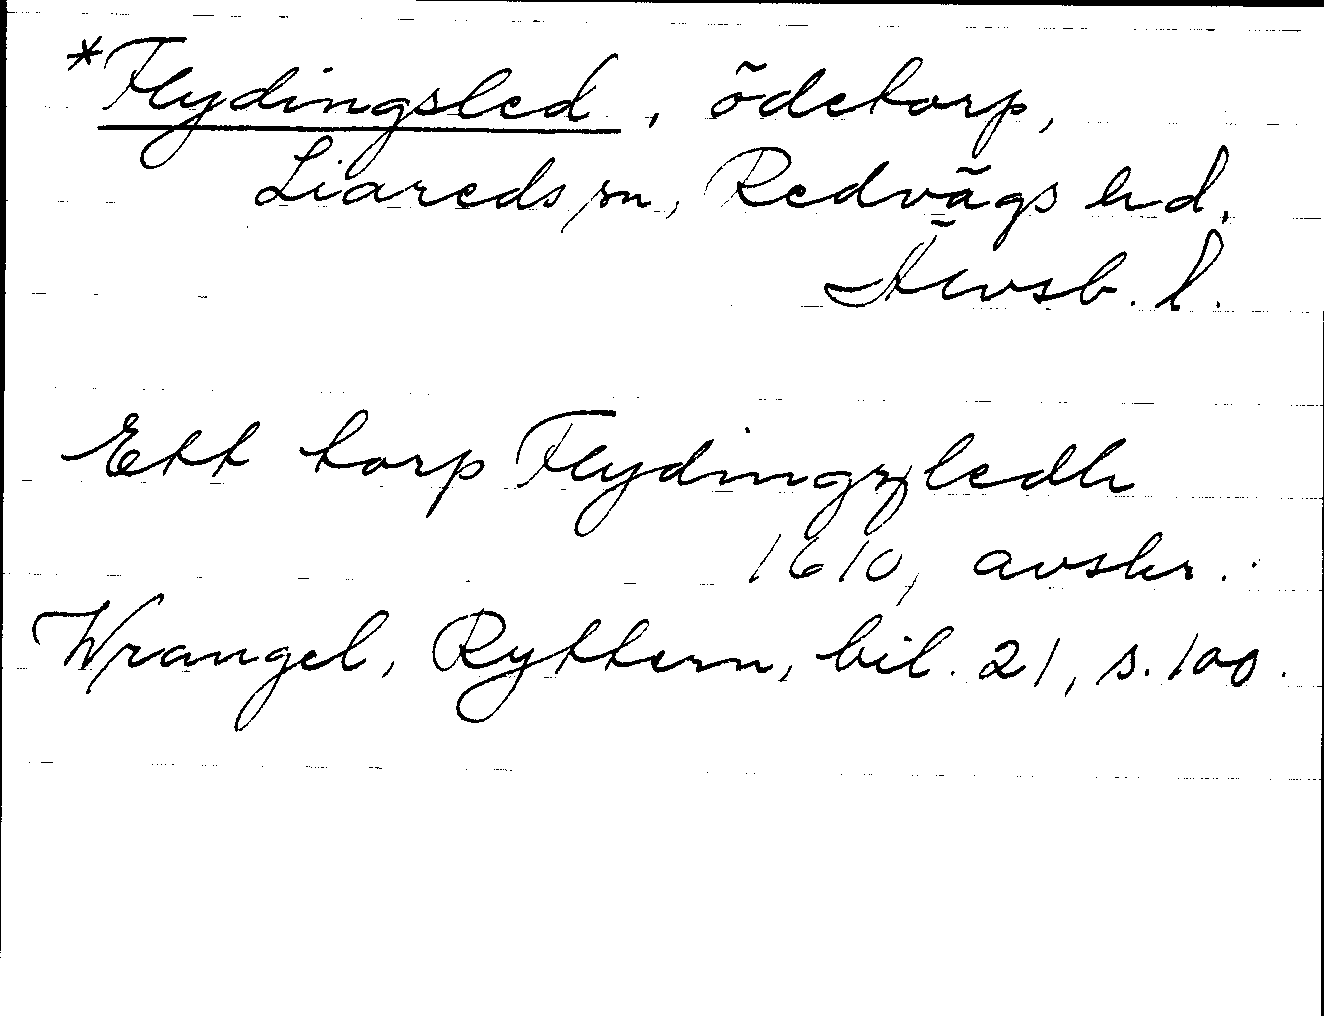 *Flydingsled, ödetorp,
Liareds sn, Redvägs hd,
Älvsb. l.
Ett torp Flydingzledh
1610, avskr.
Wrangel, Ryttern, bil. 21, s. 100.